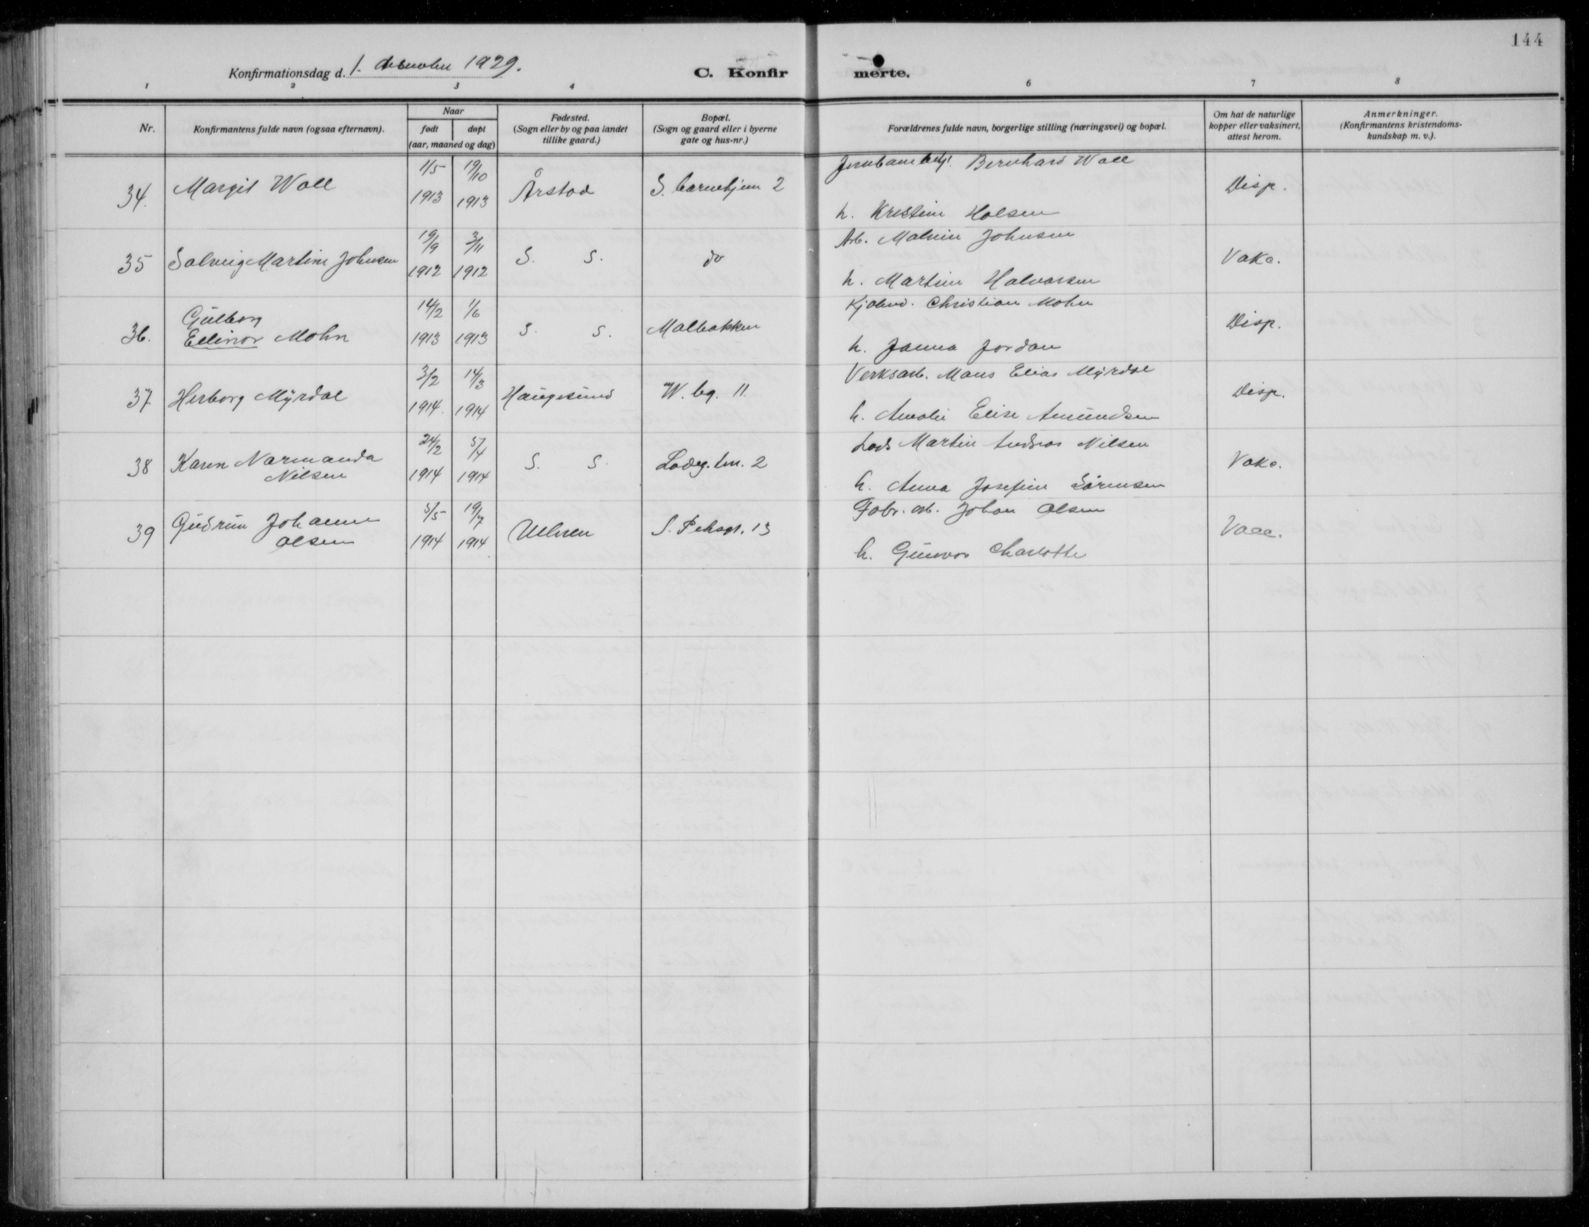 144
Konfirmationsdag d. 1. desember 1929.
C. Konfirmerte.
1 2 3 4 6 7 8
Nr.
Konfirmantens fulde navn (ogsaa efternavn).
Naar
født døpt
(aar, maaned og dag)
Fødested.
(Sogn eller by og paa landet
tillike gaard.)
Bopæl.
(Sogn og gaard eller i byerne
gate og hus-nr.)
Forældrenes fulde navn, borgerlige stilling (næringsvei) og bopæl.
Om hat de naturlige
kopper eller vaksinert,
attest herom.
Anmerkninger.
(Konfirmantens kristendoms-
kundskap m. v.).
34. Margit Wall 1/5 1913 19/10 1913 Årstad S. barnehjem 2 Bernhard Wall
h. Kristine Holsen Disp.
35 Solveig Martine Johnsen 19/9 1912 3/11 1912 S. S. do Arb. Malvin Johnsen
h. Martine Halvorsen Vakc.
36. Gülborg
Ellinor Mohn 14/2 1913 1/6 1913 S. S. Møllbakken Christian Mohn
h. Janna Jordan Disp.
37 Herborg Myrdal 3/2 1914. 14/3 1914 Haugesund W. bg. 11 Verksarb. Mons Elias Myrdal
h. Amalie Elise Amundsen Disp.
38 Karen Normanda
Nilsen 24/2 1914 5/4 1914 S. S. 2 Lods Martin Andreas Nilsen
h. Anna Josefine Sørensen Vakc.
39 Gudrun Johanne
Olsen 5/5 1914 19/7 1914 Ullven 13 Fabr. arb. Johan Olsen
h. Gunvor Charlotte Vacc.